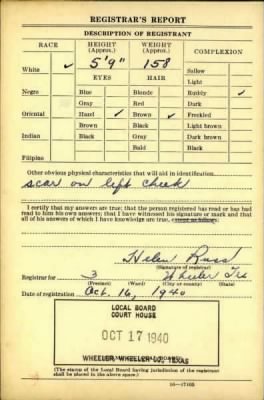 REGISTRAR'S REPORT
DESCRIPTION OF REGISTRANT
RACE HEIGHT (Approx.) WEIGHT (Approx.) COMPLEXION
White ✓ 5'9" 158 Sallow
EYES HAIR Light
Negro Blue Blonde Ruddy ✓
Gray Red Dark
Oriental Hazel ✓ Brown ✓ Freckled
Brown Black Light brown
Indian Black Gray Dark brown
Bald Black
Filipino
Other obvious physical characteristics that will aid in identification
scar on left cheek
I certify that my answers are true; that the person registered has read or has had
read to him his own answers; that I have witnessed his signature or mark and that
all of his answers of which I have knowledge are true, except as follows:
Helen Russ
(Signature of registrar)
Registrar for 3 Wheeler Tex
(Precinct) (Ward) (City or county) (State)
Date of registration Oct. 16, 1940
LOCAL BOARD
COURT HOUSE
OCT 17 1940
WHEELER, TEXAS
(The stamp of the Local Board having jurisdiction of the registrant
shall be placed in the above space.)
16—17105